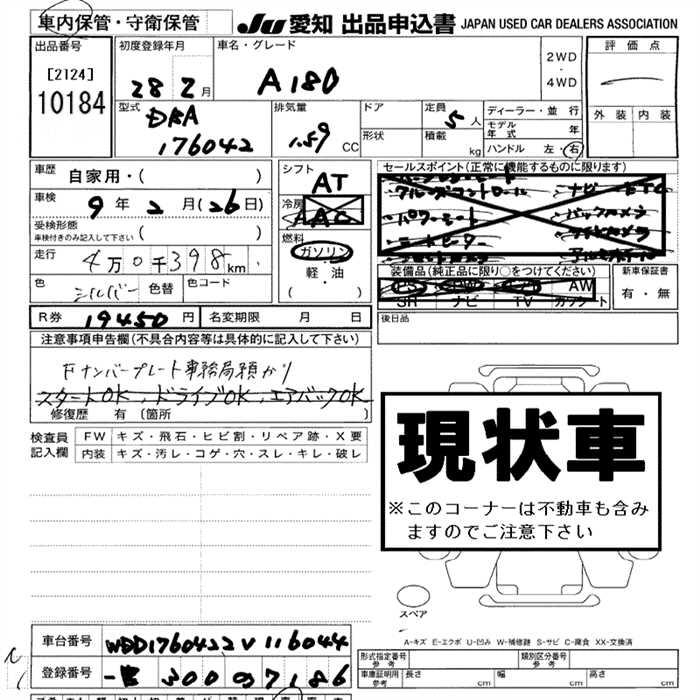 車内保管・守衛保管
JU 愛知 出品申込書 JAPAN USED CAR DEALERS ASSOCIATION
出品番号
[2124]
10184
初度登録年月
28 2月
車名・グレード
A180
2WD
・
4WD
評価点
外装 内装
型式
DBA
176042
排気量
1.59 CC
ドア
形状
定員
5人
積載
kg
ディーラー・並行
モデル年式 年
ハンドル 左・右
車歴
自家用・( )
車検
9年2月(26日)
受検形態
車検付きのみ記入して下さい ( )
走行
4万0千398km
色
シルバー
色替
色コード
シフト
AT
冷房
AAC
燃料
ガソリン
軽・油
( )
セールスポイント(正常に機能するものに限ります)
クルーズコントロール
パワーシート
シートヒーター
ナビ ETC
バックカメラ
装備品(純正品に限り○をつけてください)
AW
SR ナビ TV カセット
新車保証書
有・無
R券 19450円
名変期限 月 日
後日品
注意事項申告欄(不具合内容等は具体的に記入して下さい)
Fナンバープレート事務局預かり
スタートOK、ドライブOK、エアバックOK
修復歴 有(箇所 )
検査員記入欄
FW キズ・飛石・ヒビ割・リペア跡・X要
内装 キズ・汚レ・コゲ・穴・スレ・キレ・破レ
現状車
※このコーナーは不動車も含み
ますのでご注意下さい
スペア
A-キズ E-エクボ U-凹み W-補修跡 S-サビ C-腐食 XX-交換済
車台番号 WDD1760422V116044
登録番号 300 7186
形式指定番号 参考
類別区分番号 参考
車庫証明用 参考
長さ cm 幅 cm 高さ cm